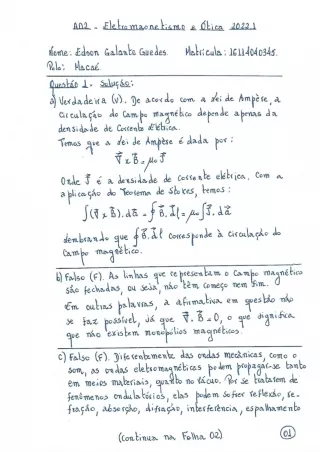 AD2 - Eletromagnetismo e Ótica 2022.1
Nome: Edson Galante Guedes. Matrícula: 16114040345.
Polo: Macaé
Questão 1 - Solução:
a) Verdadeira (V). De acordo com a Lei de Ampère, a
circulação do Campo magnético depende apenas da
densidade de Corrente elétrica.
Temos que a Lei de Ampère é dada por:
∇⃗ x B⃗ = μ₀ J⃗
Onde J⃗ é a densidade de corrente elétrica. Com a
aplicação do Teorema de Stokes, temos:
∫(∇⃗ x B⃗). da⃗ = ∮ B⃗. dl⃗ = μ₀ ∫ J⃗. da⃗
Lembrando que ∮ B⃗. dl⃗ corresponde à circulação do
Campo magnético.
b) Falso (F). As linhas que representam o Campo magnético
são fechadas, ou seja, não têm começo nem fim.
Em outras palavras, a afirmativa em questão não
se faz possível, já que ∇⃗. B⃗ = 0, o que significa
que não existem monopólos magnéticos.
c) Falso (F). Diferentemente das ondas mecânicas, como o
som, as ondas eletromagnéticas podem propagar-se tanto
em meios materiais, quanto no vácuo. Por se tratarem de
fenômenos ondulatórios, elas podem sofrer reflexão, re-
fração, absorção, difração, interferência, espalhamento
(continua na Folha 02) 01